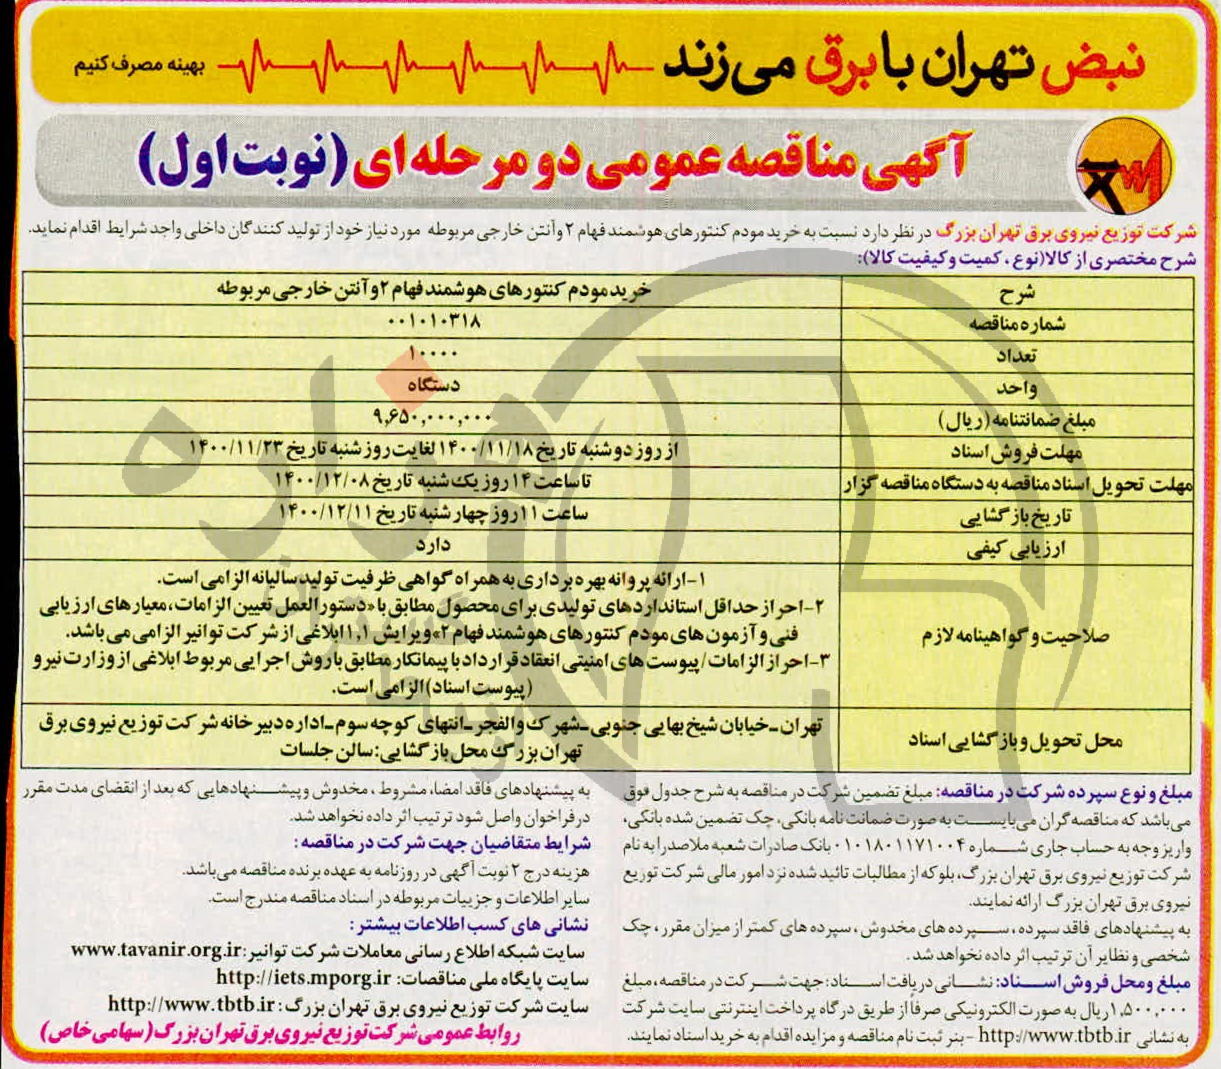 نبض تهران با برق می‌زند
بهینه مصرف کنیم
آگهی مناقصه عمومی دو مرحله ای (نوبت اول)
شرکت توزیع نیروی برق تهران بزرگ در نظر دارد نسبت به خرید مودم کنتورهای هوشمند فهام ۲ و آنتن خارجی مربوطه مورد نیاز خود از تولید کنندگان داخلی واجد شرایط اقدام نماید.
شرح مختصری از کالا(نوع، کمیت و کیفیت کالا):
شرح خرید مودم کنتورهای هوشمند فهام ۲ و آنتن خارجی مربوطه
شماره مناقصه ۰۰۱۰۱۰۳۱۸
تعداد ۱۰۰۰۰
واحد دستگاه
مبلغ ضمانتنامه (ریال) ۹,۶۵۰,۰۰۰,۰۰۰
مهلت فروش اسناد از روز دوشنبه تاریخ ۱۴۰۰/۱۱/۱۸ لغایت روز شنبه تاریخ ۱۴۰۰/۱۱/۲۳
مهلت تحویل اسناد مناقصه به دستگاه مناقصه گزار تا ساعت ۱۴ روز یک شنبه تاریخ ۱۴۰۰/۱۲/۰۸
تاریخ بازگشایی ساعت ۱۱ روز چهارشنبه تاریخ ۱۴۰۰/۱۲/۱۱
ارزیابی کیفی دارد
صلاحیت و گواهینامه لازم
۱-ارائه پروانه بهره برداری به همراه گواهی ظرفیت تولید سالیانه الزامی است.
۲-احراز حداقل استانداردهای تولیدی برای محصول مطابق با «دستورالعمل تعیین الزامات، معیارهای ارزیابی
فنی و آزمون های مودم کنتورهای هوشمند فهام ۲» ویرایش ۱,۱ ابلاغی از شرکت توانیر الزامی می باشد.
۳-احراز الزامات/ پیوست های امنیتی انعقاد قرارداد با پیمانکار مطابق با روش اجرایی مربوط ابلاغی از وزارت نیرو
(پیوست اسناد) الزامی است.
محل تحویل و بازگشایی اسناد
تهران ـ خیابان شیخ بهایی جنوبی ـ شهرک والفجر ـ انتهای کوچه سوم ـ اداره دبیرخانه شرکت توزیع نیروی برق
تهران بزرگ محل بازگشایی: سالن جلسات
مبلغ و نوع سپرده شرکت در مناقصه: مبلغ تضمین شرکت در مناقصه به شرح جدول فوق
می باشد که مناقصه گران می بایست به صورت ضمانت نامه بانکی، چک تضمین شده بانکی،
واریز وجه به حساب جاری شماره ۰۱۰۱۸۰۱۱۷۱۰۰۴ بانک صادرات شعبه ملاصدرا به نام
شرکت توزیع نیروی برق تهران بزرگ، بلوکه از مطالبات تائید شده نزد امور مالی شرکت توزیع
نیروی برق تهران بزرگ ارائه نمایند.
به پیشنهادهای فاقد سپرده، سپرده های مخدوش، سپرده های کمتر از میزان مقرر، چک
شخصی و نظایر آن ترتیب اثر داده نخواهد شد.
مبلغ و محل فروش اسناد: نشانی دریافت اسناد: جهت شرکت در مناقصه، مبلغ
۱,۵۰۰,۰۰۰ ریال به صورت الکترونیکی صرفاً از طریق درگاه پرداخت اینترنتی سایت شرکت
به نشانی http://www.tbtb.ir - بنر ثبت نام مناقصه و مزایده اقدام به خرید اسناد نمایند.
به پیشنهادهای فاقد امضا، مشروط، مخدوش و پیشنهادهایی که بعد از انقضای مدت مقرر
در فراخوان واصل شود ترتیب اثر داده نخواهد شد.
شرایط متقاضیان جهت شرکت در مناقصه:
هزینه درج ۲ نوبت آگهی در روزنامه به عهده برنده مناقصه می باشد.
سایر اطلاعات و جزییات مربوطه در اسناد مناقصه مندرج است.
نشانی های کسب اطلاعات بیشتر:
سایت شبکه اطلاع رسانی معاملات شرکت توانیر: www.tavanir.org.ir
سایت پایگاه ملی مناقصات: http://iets.mporg.ir
سایت شرکت توزیع نیروی برق تهران بزرگ: http://www.tbtb.ir
روابط عمومی شرکت توزیع نیروی برق تهران بزرگ (سهامی خاص)